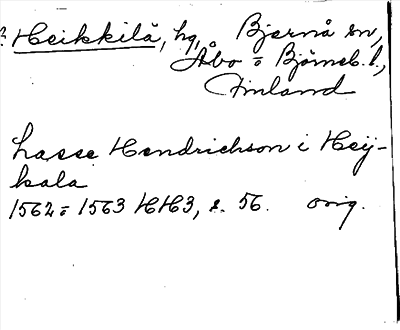 ? Heikkilä, hg, Bjernå sn,
Åbo = Björneb. l.,
Finland
Lasse Hendrichson i Heij-
kala
1562 = 1563 HH3, s. 56. orig.